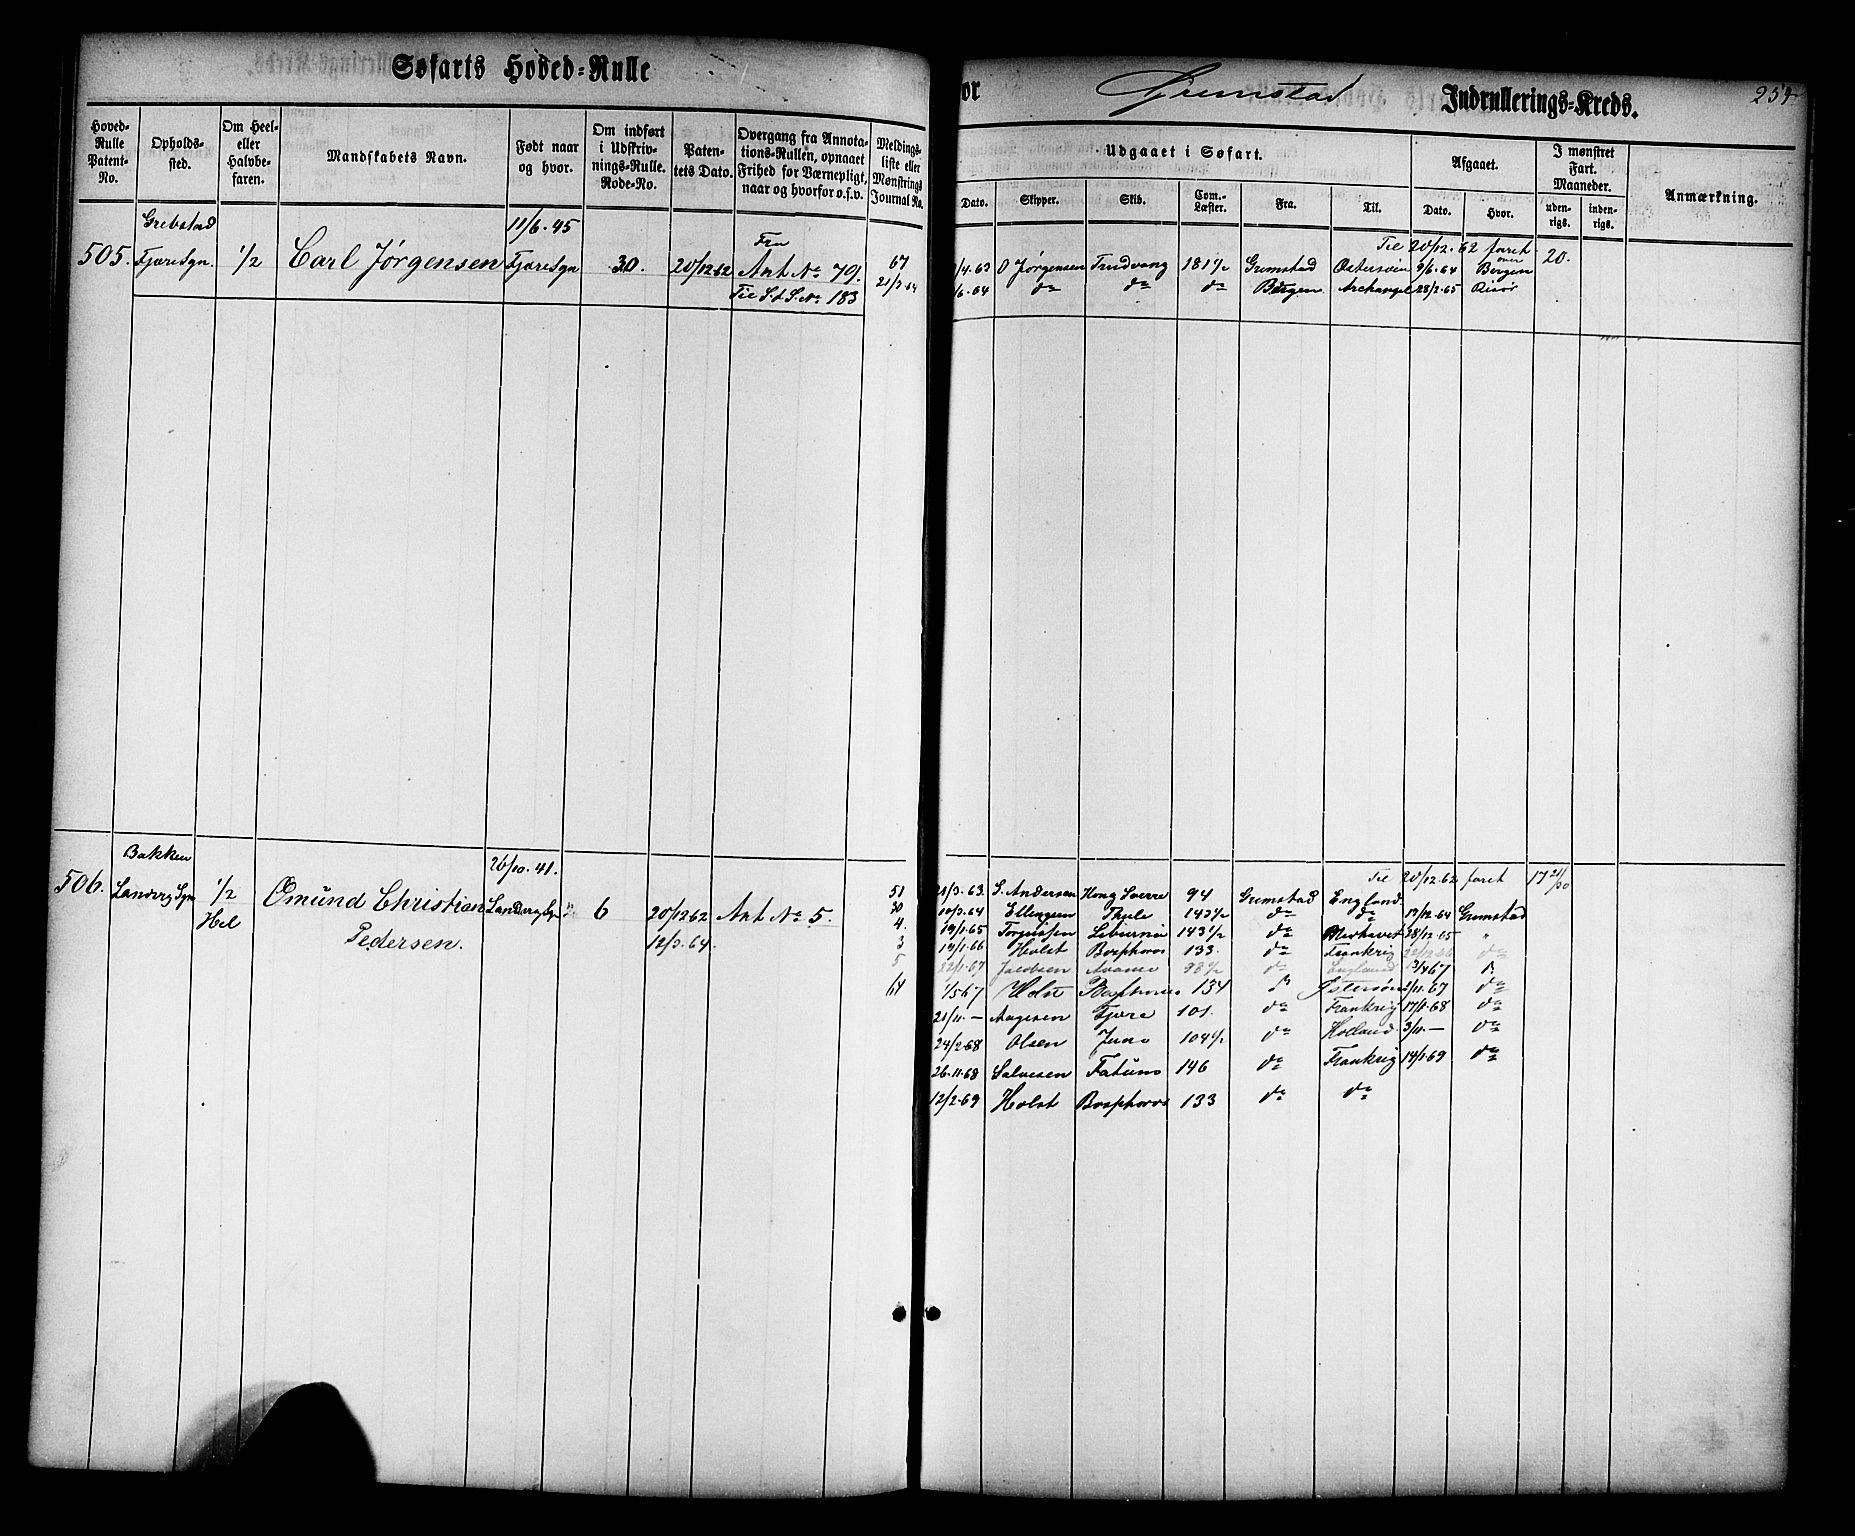 Søfarts Hoved-Rulle
Hoved-Rulle Patent-No.
Opholds-sted.
Om Heel- eller Halvbe-faren.
Mandskabets Navn.
Født naar og hvor.
Om indført i Udskriv-nings-Rulle. Rode-No.
Paten-tets Dato.
Overgang fra Annota-tions-Rullen, opnaaet Frihed for Værnepligt, naar og hvorfor o.s.v.
Meldings-liste eller Mønstrings Journal No.
Grebstad 11/6.45 Fra
505. Fjære Sgn. 1/2 Carl Jørgensen Fjære Sgn 30. 20/12 62 Ant No 791. 67
Til S.d.S. No 183 21/3 64
Bakken 26/10.41.
506. Landvig Sgn 1/2 Omund Christian Landvig Sgn 6 20/12 62 Ant No 5. 51
Hel Pedersen. 12/3.64. 30
4.
3
5
64
or Grimstad Indrullerings-Kreds. 254
Udgaaet i Søfart.
Afgaaet.
I mønstret Fart. Maaneder.
Anmærkning.
Dato. Skipper. Skib. Com.-Læster. Fra. Til. Dato. Hvor. uden-rigs. inden-rigs.
Til 20/12.62 faret 20.
/4.63 O Jørgensen Trudvang 181 1/2 Grimstad Østersøen 9/6.64 over Bergen
/6.64 do do do Bergen Archangel 28/2.65 Risør
Til 20/12.62 faret 17 21/30
21/3.63. S. Andersen Kong Sverre 94 Grimstad England
10/3.64 Ellingsen Thule 143 1/2 do do 19/12.64 Grimstad
19/1.65 Torgussen Liburnia 143 1/2 do 28/12.65 "
19/1.66 Holst Bosphoros 133. do Frankrig 22/12.66 do
22/1.67 Jacobsen 98 1/2 do England 13/4 67
1/5.67 Holst Bosphoros 134 Østersøen 2/11.67 do
21/11.— Aagesen Fjære 101. do Frankrig 17/1.68 do
24/2.68 Olsen Juno 104 1/2 do Holland 3/11.— do
26.11.68 Salvesen Fatuno 146 do Frankrig 14/1.69 do
12/2.69 Holst Bosphoros 133 do do